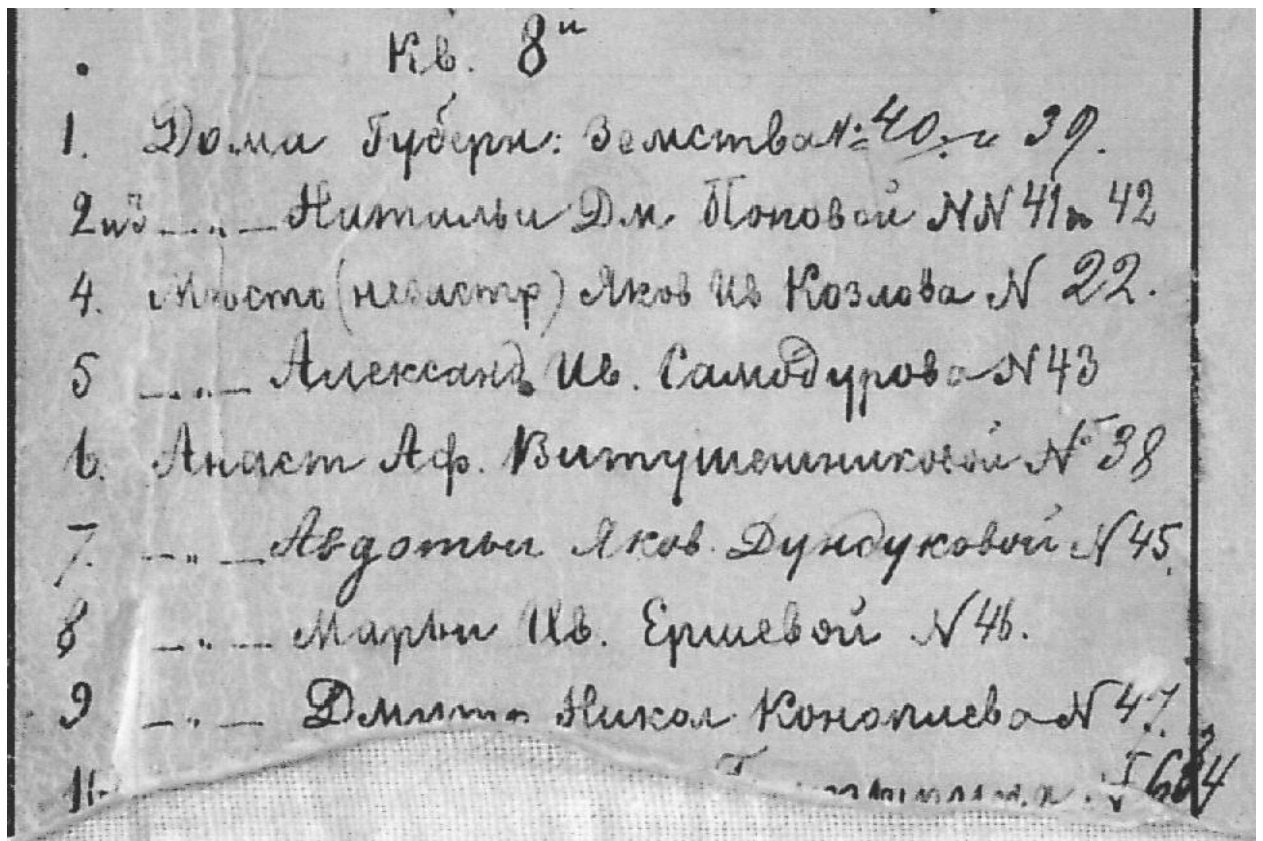 Кв. 8й
1. Дома Губерн: Земства №40 и 39.
2 и 3 —„— Натальи Дм. Поповой NN 41 и 42
4. Место Яков Ив Козлова N 22.
5 —„— Александ Ив. Самодурова N 43
6. Анаст Аф. Витушешниковой № 38
7. —„— Авдотьи Яков. Дундуковой N 45.
8 —„— Марьи Ив. Ершевой N 46.
9 —„— Дмит Никол Коноплева N 47.